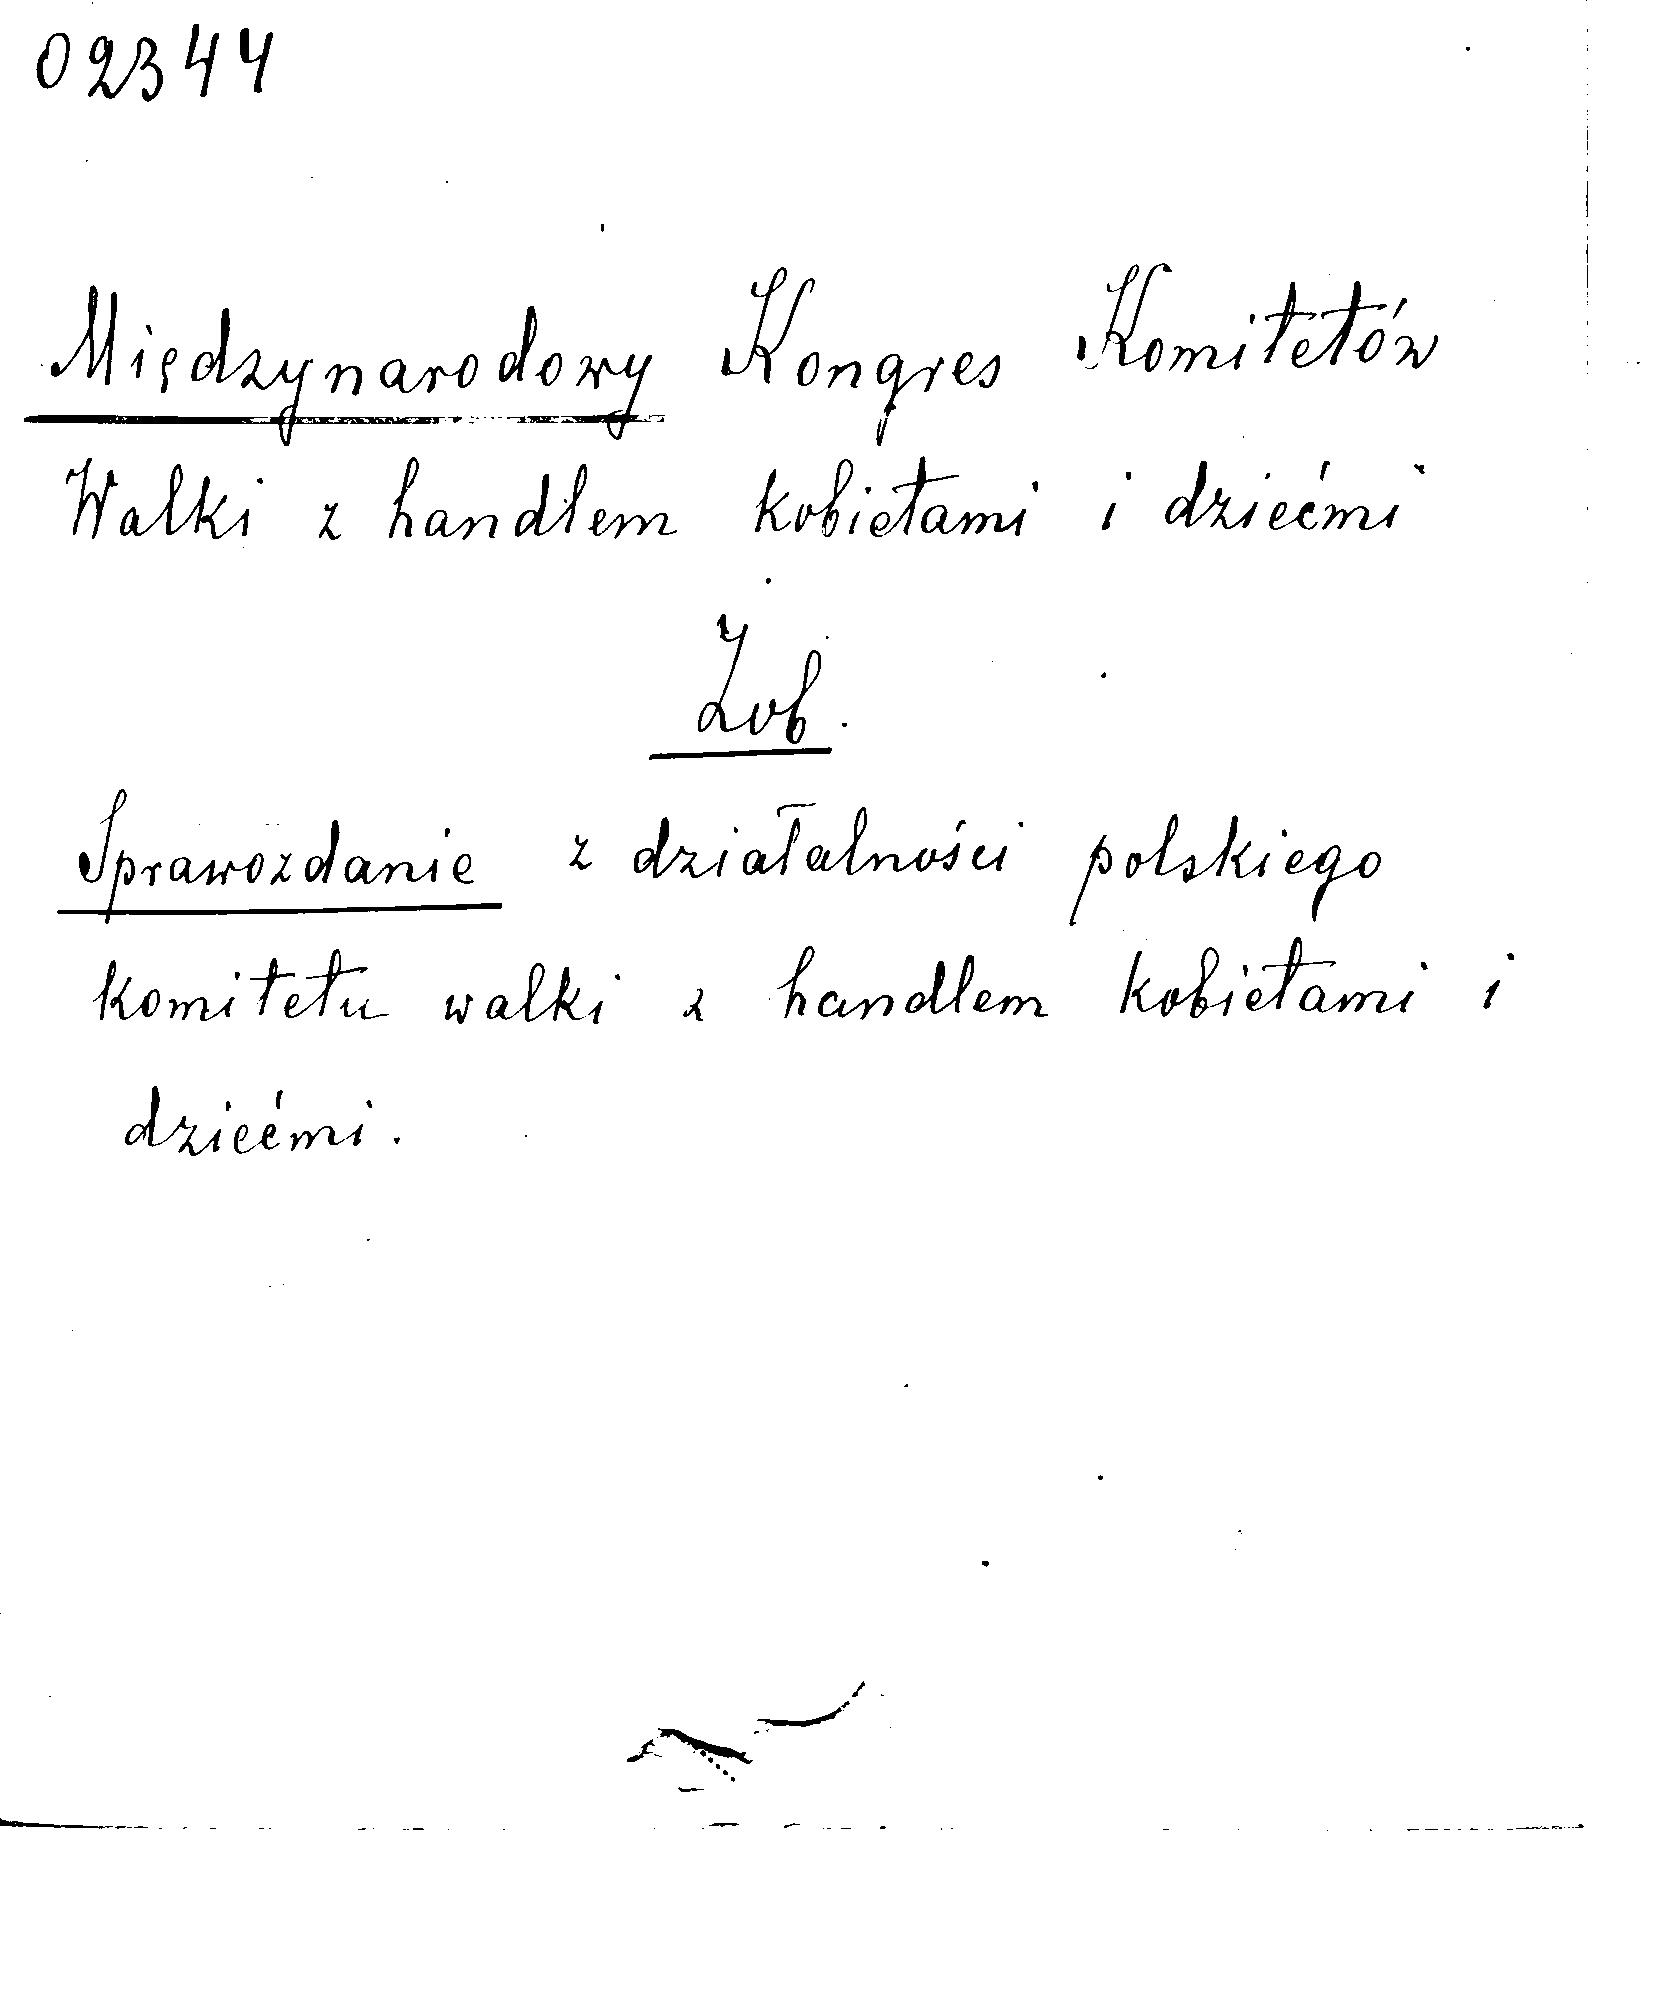 02344
Międzynarodowy Kongres Komitetów
Walki z handlem kobietami i dziećmi
Zob.
Sprawozdanie z działalności polskiego
komitetu walki z handlem kobietami i
dziećmi.